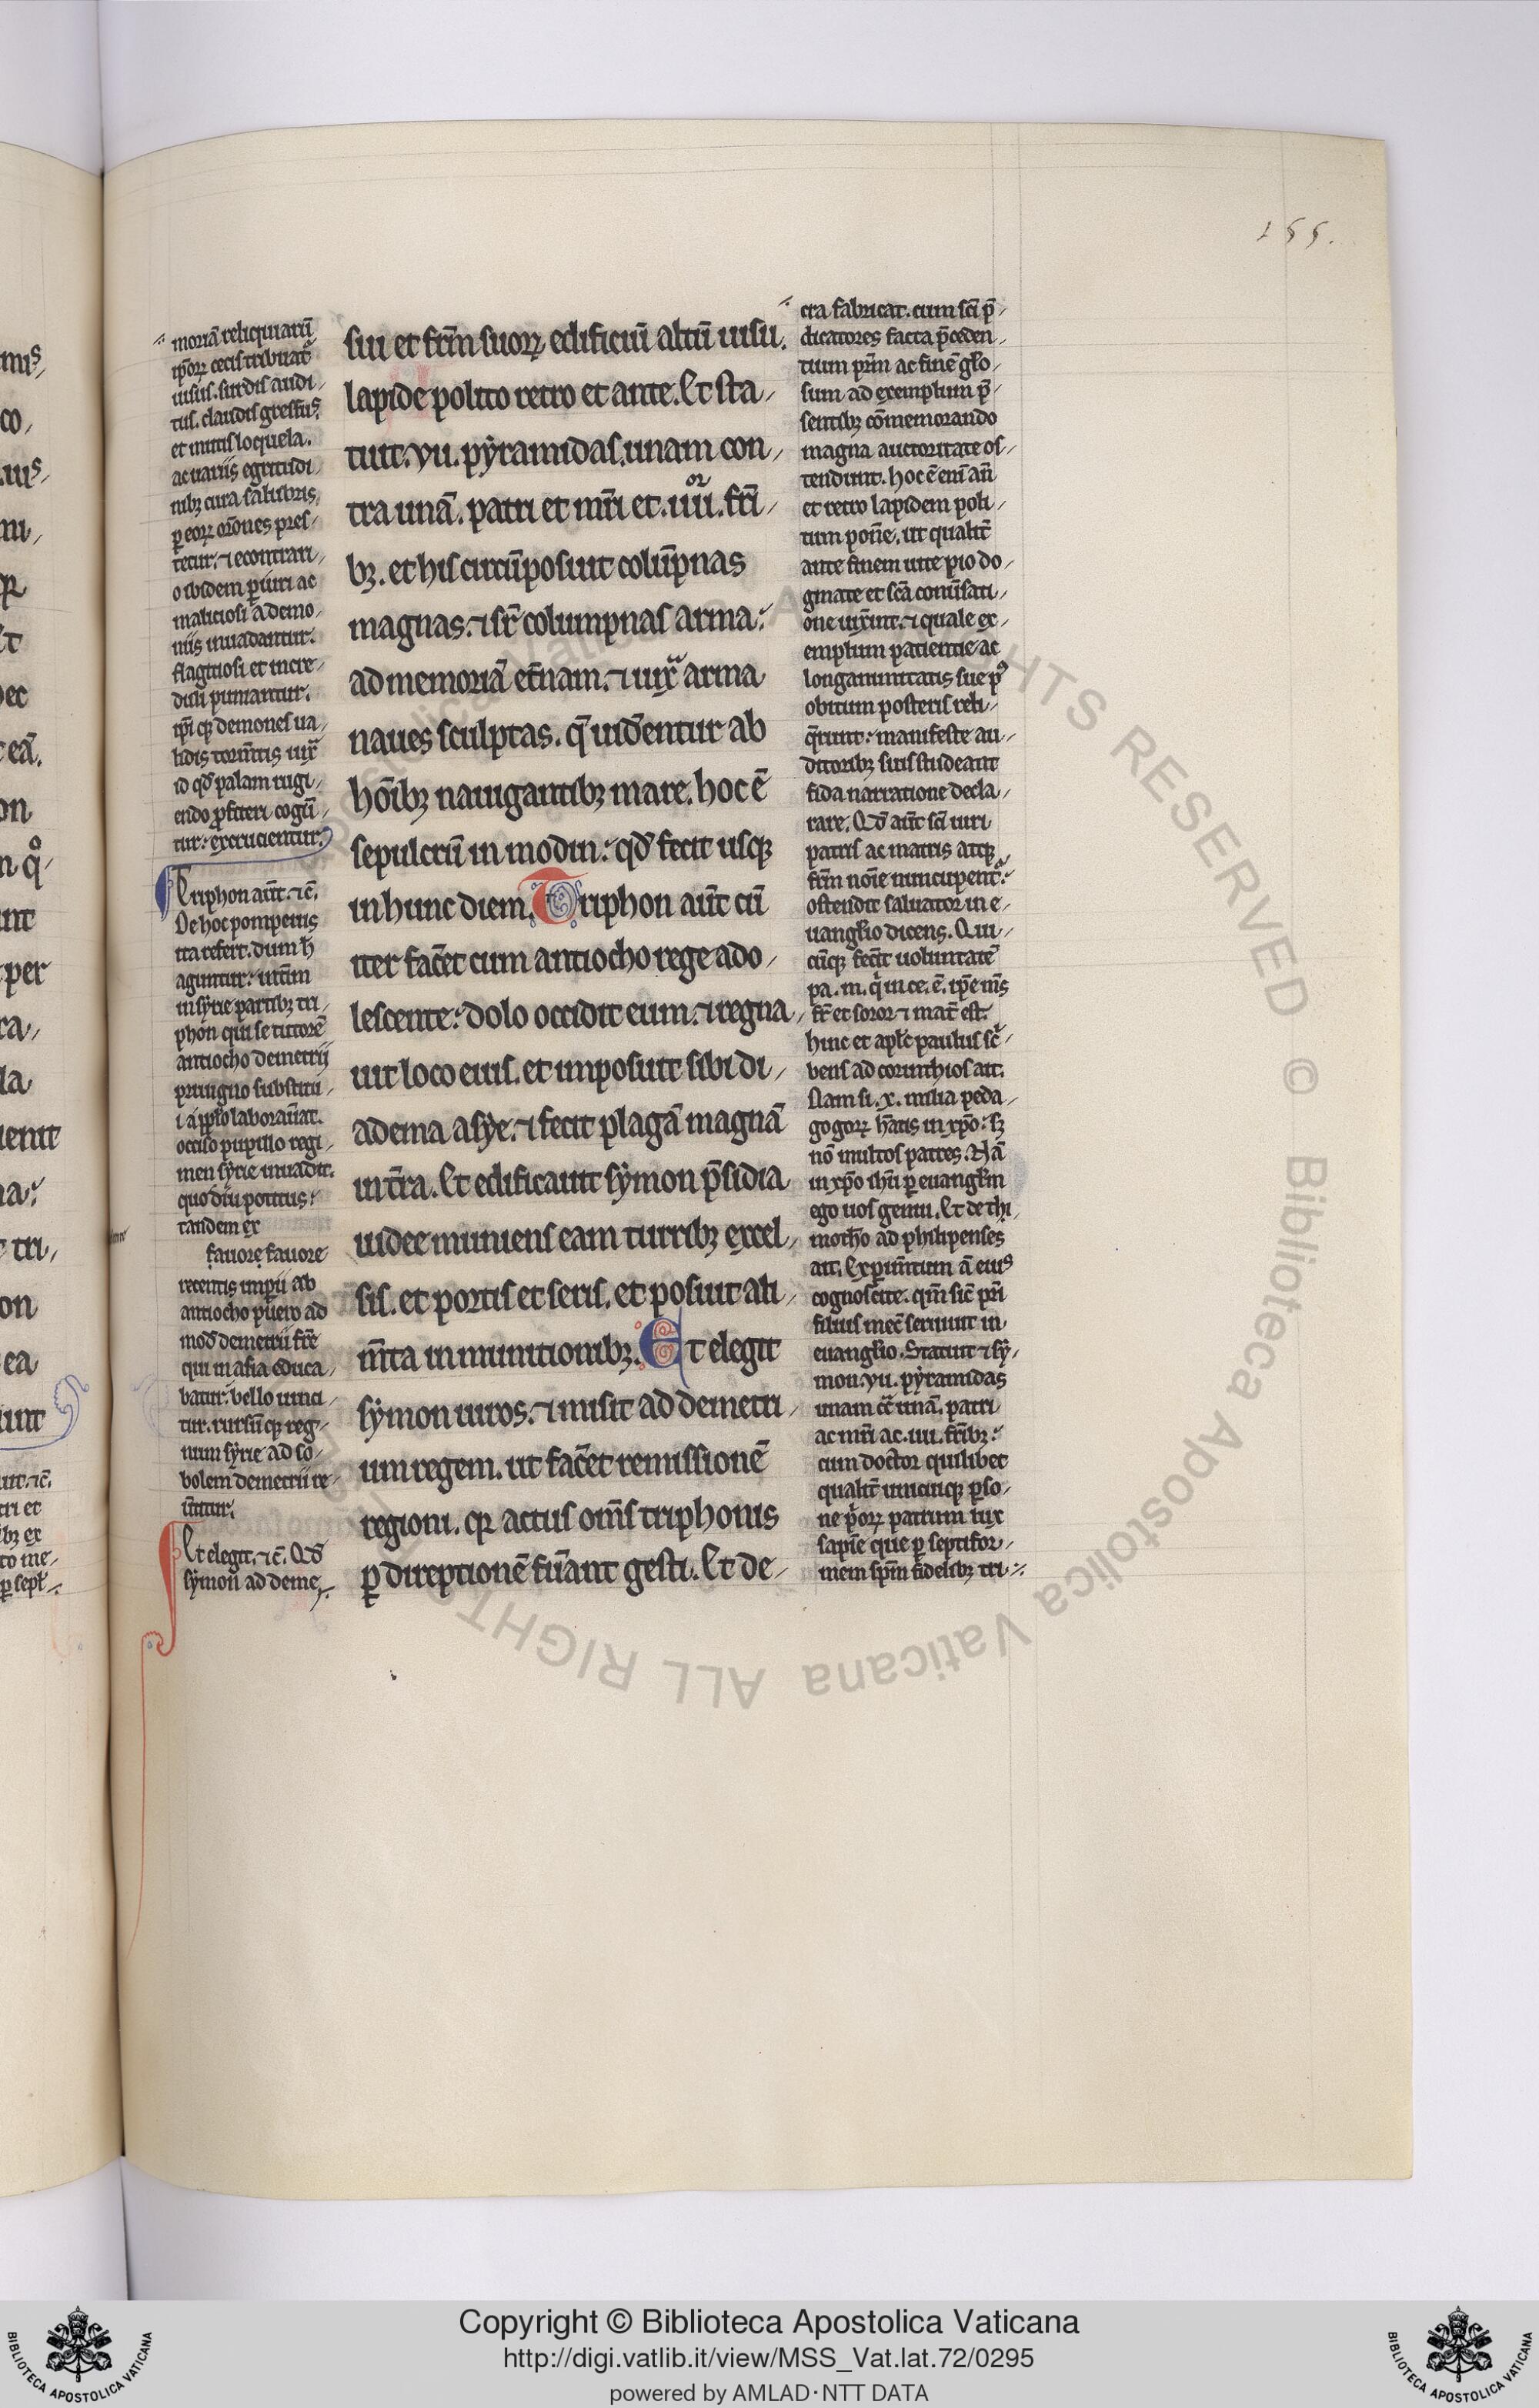 155.
moriā reliquiarū
ip̄oꝝ cecis tribuat᷑
uisus. surdis audi-
tus. claudis gressus.
et mutis loquela.
ac uariis egritudi-
nibꝫ cura salubris
ꝑ eoꝝ or̄ones pres-
tetur. ⁊ econtrari-
o ibidem ꝑiuri ac
maliciosi a demo-
niis inuadantur.
flagitiosi et incre-
duli puniantur.
ip̄i qꝫ demones ua-
lidis torm̄tis iux̄
id qd̄ palam rugi-
endo ꝓfiteri cogū-
tur: excrucientur.
Triphon aūt. ⁊c̄.
De hoc pompeius
ita refert. dum h̄
aguntur: int̄im
in syrie partibꝫ tri-
phon qui se tutorē
antiocho demetrij
priuigno substitu-
i a pp̄lo laborau̅at.
occiso pupillo regi-
men syrie inuadit.
quo diu potitus:
tandem ex
fauore fauore
recentis imꝑii ab
antiocho puero ad
mod̄ demetrii fr̄e
qui in asia educa-
batur: bello uinci-
tur. rursūqꝫ reg-
num syrie ad so-
bolem demetrii re-
u̅titur.
Et elegit. ⁊c̄. Qd̄
symon ad deme-
sui et fr̄m suoꝝ edificiū altū uisu.
lapide polito retro et ante. Et sta-
tuit. vii. pyramidas. unam con-
tra unā. patri et mr̄i et. iiii.or fr̄i-
bꝫ. et his circūposuit colūpnas
magnas. ⁊ sr̄ columpnas arma:
ad memoriā et̄nam. ⁊ iux̄ arma
naues sculptas. q̄ uid̄entur ab
hoībꝫ nauigantibꝫ mare. hoc ē
sepulcrū in modin: qd̄ fecit usqꝫ
in hunc diem. Triphon aūt cū
iter fac̄et cum antiocho rege ado-
lescente: dolo occidit eum. ⁊ regna-
uit loco eius. et imposuit sibi di-
adema asye. ⁊ fecit plagā magnā
in t̄ra. Et edificauit symon p̄sidia
iudee muniens eam turribꝫ excel-
sis. et portis et seris. et posuit ali-
m̄ta in munitionibꝫ. Et elegit
symon uiros. ⁊ misit ad demetri-
um regem. ut fac̄et remissionē
regioni. qꝛ actus om̄s triphonis
ꝑ direptionē fu̅ant gesti. Et de-
cra fabricat. cum sc̄i p̄-
dicatores facta p̄ceden-
tium pr̄m ac finē glo-
sum ad exemplum p̄-
sentibꝫ cōmemorando
magna auctoritate os-
tendunt. hoc ē eni an̄
et retro lapidem poli-
tum pon̄e. ut qualit̄
ante finem uite pio do-
gmate et sc̄a conu̅sati-
one uix̄int. ⁊ quale ex-
emplum patientie ac
longanimitatis sue p9
obitum posteris reli-
q̄runt: manifeste au-
ditoribꝫ suis studeant
fida narratione decla-
rare. Qd̄ aūt sc̄i uiri
patris ac matris atqꝫ
fr̄m noīe nuncupent᷑:
ostendit saluator in e-
uangl̄io dicens. Qui-
cūqꝫ fec̄it uoluntatē
pa. m. q̇ in ce. ē. ip̄e m̄s
fr̄ et soror ⁊ mat̄ est.
hinc et apl̄c paulus sc̄-
bens ad corinthios ait.
Nam si. x. milia peda-
gogoꝝ h̄atis in xp̄o: sꝫ
nō multos patres. Nā
in xp̄o ih̄u ꝑ euangl̄m
ego uos genui. Et de thi-
moth̄o ad philipenses
ait. Exꝑim̄tum ā eius
cognoscite. qm̄ sic̄ pr̄i
filius mec̄ seruiuit in
euangl̄io. Statuit ⁊ sy-
mon. vii. pyramidas
unam cōt̄ unā. patri
ac mr̄i ac. iiii. fr̄ibꝫ:
cum doctor quilibet
qualit̄ unicuiqꝫ ꝑso-
ne p̄oꝝ patrum lux
sapīe que ꝑ septifor-
mem spm̄ fidelibꝫ tri-
APOSTOLICA VATICANA ALL RIGHTS RESERVED © Biblioteca Apostolica Vaticana ALL RIGHTS RESERVED
Copyright © Biblioteca Apostolica Vaticana
http://digi.vatlib.it/view/MSS_Vat.lat.72/0295
powered by AMLAD·NTT DATA
BIBLIOTECA APOSTOLICA VATICANA
BIBLIOTECA APOSTOLICA VATICANA